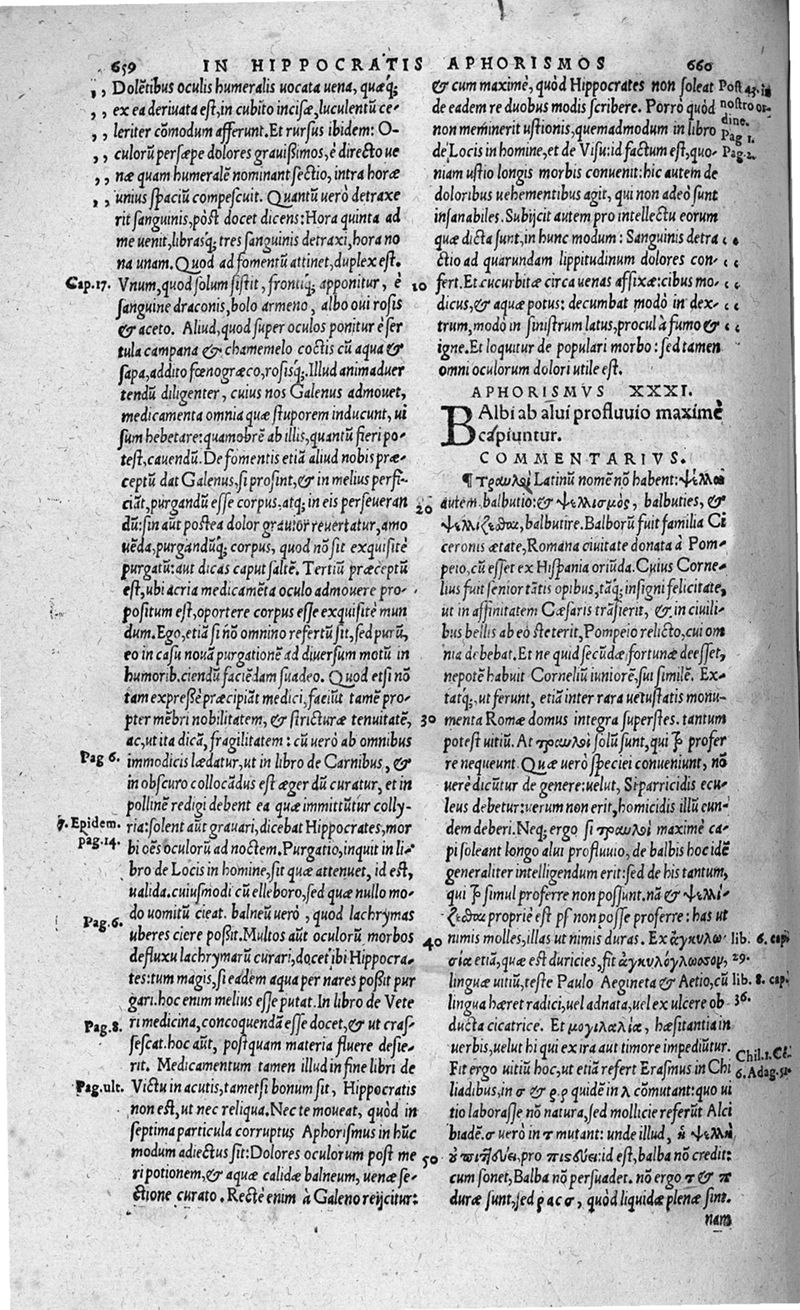 659 IN HIPPOCRATIS APHORISMOS 660
,, Dolẽtibus oculis humeralis uocata uena, quæq;
,, ex ea deriuata est, in cubito incisæ, luculentũ ce-
,, leriter cõmodum afferunt. Et rursus ibidem: O-
,, culorũ persæpe dolores grauißimos, è directo ue
,, næ quam humeralẽ nominant sectio, intra horæ
,, unius spaciũ compescuit. Quantũ uerò detraxe
rit sanguinis, pòst docet dicens: Hora quinta ad
me uenit, librasq; tres sanguinis detraxi, hora no
na unam. Quod ad fomentũ attinet, duplex est.
Cap. 17. Vnum, quod solum sistit, frontiq; apponitur, è
sanguine draconis, bolo armeno, albo oui rosis
& aceto. Aliud, quod super oculos ponitur è ser
tula campana & chamemelo coctis cũ aqua &
sapa, addito fœnogræco, rosisq;. Illud animaduer
tendũ diligenter, cuius nos Galenus admouet,
medicamenta omnia quæ stuporem inducunt, ui
sum hebetare: quamobrẽ ab illis, quantũ fieri po-
test, cauendũ. De fomentis etiã aliud nobis præ-
ceptũ dat Galenus, si prosint, & in melius perfi-
ciãt, purgandũ esse corpus. atq; in eis perseueran
dũ: sin aũt postea dolor grauior reuertatur, amo
uẽda, purgandũq; corpus, quod nõ sit exquisitè
purgatũ: aut dicas caput saltẽ. Tertiũ præceptũ
est, ubi acria medicamẽta oculo admouere pro-
positum est, oportere corpus esse exquisitè mun
dum. Ego, etiã si nõ omnino refertũ sit, sed purũ,
eo in casu nouã purgationẽ ad diuersum motũ in
humorib. ciendũ faciẽdam suadeo. Quod etsi nõ
tam expreßè præcipiãt medici, faciũt tamẽ pro-
pter mẽbri nobilitatem, & stricturæ tenuitatẽ,
ac, ut ita dicã, fragilitatem: cũ uerò ab omnibus
Pag 6. immodicis lædatur, ut in libro de Carnibus, &
in obscuro collocãdus est æger dũ curatur, et in
pollinẽ redigi debent ea quæ immittũtur colly-
7. Epidem. ria: solent aũt grauari, dicebat Hippocrates, mor
pag. 14. bi oẽs oculorũ ad noctem. Purgatio, inquit in li-
bro de Locis in homine, sit quæ attenuet, id est,
ualida. cuiusmodi cũ elleboro, sed quæ nullo mo-
do uomitũ cieat. balneũ uerò, quod lachrymas
Pag. 6. uberes ciere poßit. Multos aũt oculorũ morbos
defluxu lachrymarũ curari, docet ibi Hippocra-
tes: tum magis, si eadem aqua per nares poßit pur
gari. hoc enim melius esse putat. In libro de Vete
Pag. 8. ri medicina, concoquendã esse docet, & ut cras-
sescat. hoc aũt, postquam materia fluere desie-
rit. Medicamentum tamen illud in fine libri de
Pag. ult. Victu in acutis, tametsi bonum sit, Hippocratis
non est, ut nec reliqua. Nec te moueat, quòd in
septima particula corruptus Aphorismus in hũc
modum adiectus sit: Dolores oculorum post me
ri potionem, & aquæ calidæ balneum, uenæ se-
ctione curato. Rectè enim à Galeno reijcitur:
& cum maximè, quòd Hippocrates non soleat Post 43. in
de eadem re duobus modis scribere. Porrò quòd nostro or-
dine.
non meminerit ustionis, quemadmodum in libro Pag 1.
de Locis in homine, et de Visu: id factum est, quo- Pag. 2.
niam ustio longis morbis conuenit: hic autem de
doloribus uehementibus agit, qui non adeò sunt
insanabiles. Subijcit autem pro intellectu eorum
quæ dicta sunt, in hunc modum: Sanguinis detra ‹‹
ctio ad quarundam lippitudinum dolores con- ‹‹
10 fert. Et cucurbitæ circa uenas affixæ: cibus mo- ‹‹
dicus, & aquæ potus: decumbat modò in dex- ‹‹
trum, modò in sinistrum latus, procul à fumo & ‹‹
igne. Et loquitur de populari morbo: sed tamen
omni oculorum dolori utile est.
APHORISMVS XXXI.
BAlbi ab alui profluuio maximè
capiuntur.
COMMENTARIVS.
¶ τραυλοὶ Latinũ nomẽ nõ habent: ψελλοὶ
20 autem, balbutio: & ψελλισμὸς, balbuties, &
ψελλίζεσθαι, balbutire. Balborũ fuit familia Ci
ceronis ætate, Romana ciuitate donata à Pom-
peio, cũ esset ex Hispania oriũda. Cuius Corne-
lius fuit senior tãtis opibus, tãq; insigni felicitate,
ut in affinitatem Cæsaris trãsierit, &, in ciuili-
bus bellis ab eo steterit, Pompeio relicto, cui om
nia debebat. Et ne quid secũdæ fortunæ deesset,
nepotẽ habuit Corneliũ iuniorẽ, sui similẽ. Ex-
tatq;, ut ferunt, etiã inter rara uetustatis monu-
30 menta Romæ domus integra superstes. tantum
potest uitiũ. At τραυλοὶ solũ sunt, qui ρ profer
re nequeunt. Quæ uerò speciei conueniunt, nõ
uerè dicũtur de genere: uelut, Si parricidis ecu-
leus debetur: uerum non erit, homicidis illũ eun-
dem deberi. Neq; ergo si τραυλοὶ maximè ca-
pi soleant longo alui profluuio, de balbis hoc idẽ
generaliter intelligendum erit: sed de his tantum,
qui ρ simul proferre non possunt. nã & ψελλί-
ζεσθαι propriè est ρσ non posse proferre: has ut
40 nimis molles, illas ut nimis duras. Ex ἀγκυλώ- lib. 6. capi
σία etiã, quæ est duricies, fit ἀγκυλόγλωσσον, 29.
linguæ uitiũ, teste Paulo Aegineta & Aetio, cũ lib. 8. cap.
lingua hæret radici, uel adnata, uel ex ulcere ob 36.
ducta cicatrice. Et μογιλαλία, hæsitantia in
uerbis, uelut hi qui ex ira aut timore impediũtur. Chil. 1. Cẽ.
Fit ergo uitiũ hoc, ut etiã refert Erasmus in Chi 6. Adag. 51.
liadibus, in σ & ρ. ρ quidẽ in λ cõmutant: quo ui
tio laborasse nõ natura, sed mollicie referũt Alci
biadẽ. σ uerò in τ mutant: unde illud, ἡ ψελλὴ
50 οὐ πιτεύει, pro πισεύει: id est, balba nõ credit:
cum sonet, Balba nõ persuadet. nõ ergo τ & π
duræ sunt, sed ρ ac σ, quòd liquidæ plenæ sint.
nam